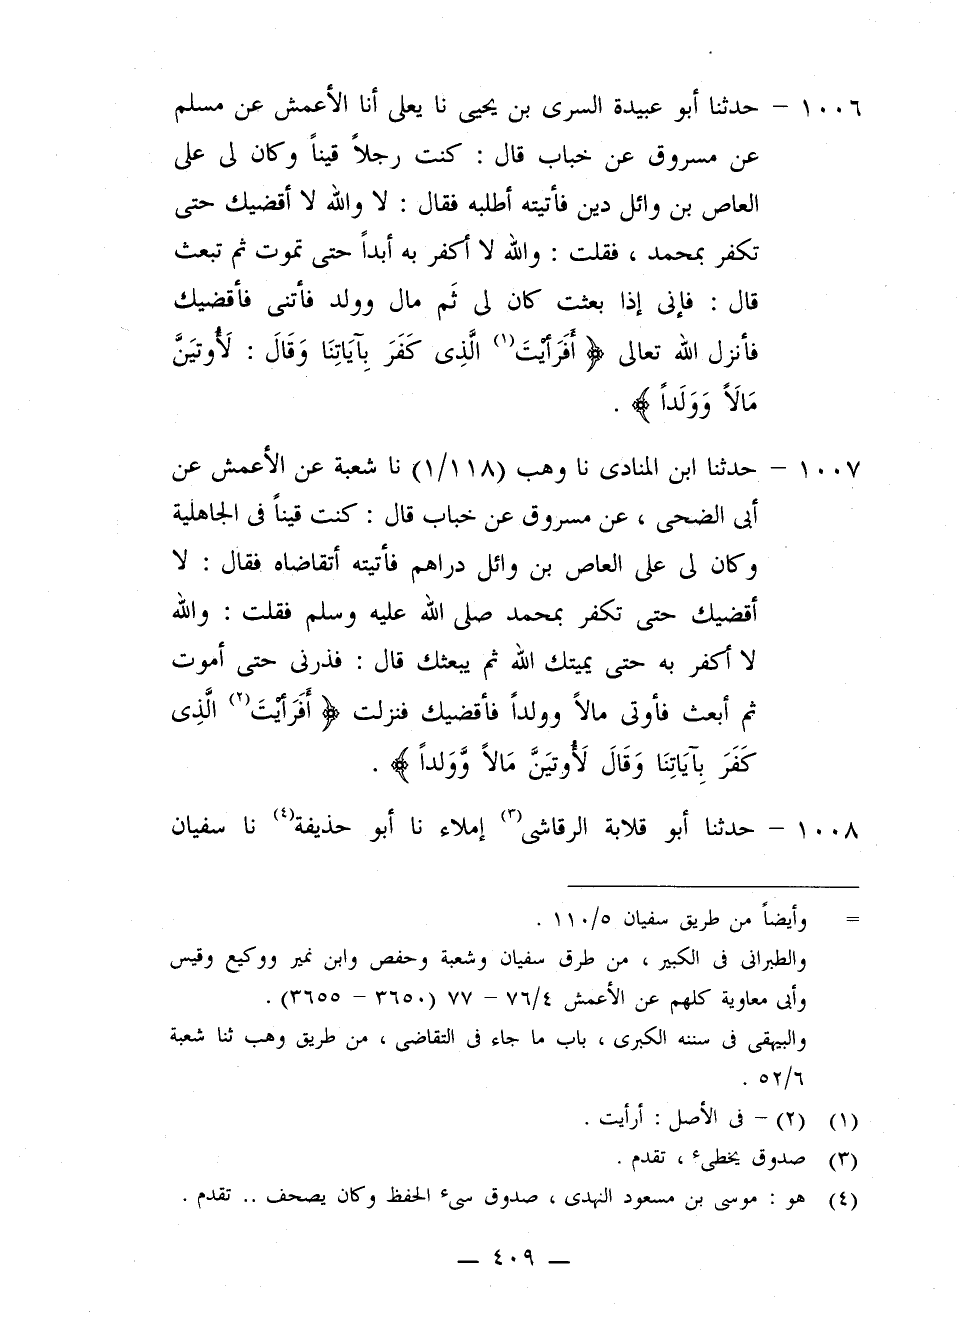 ١٠٠٦ – حدثنا أبو عبيدة السرى بن يحيى نا يعلى أنا الأعمش عن مسلم
عن مسروق عن خباب قال : كنت رجلاً قيناً وكان لى على
العاص بن وائل دين فأتيته أطلبه فقال : لا والله لا أقضيك حتى
تكفر بمحمد ، فقلت : والله لا أكفر به أبداً حتى تموت ثم تبعث
قال : فإنى إذا بعثت كان لى ثَم مال وولد فأتنى فأقضيك
فأنزل الله تعالى ﴿ أَفَرَأَيْتَ(١) الَّذِى كَفَرَ بِآيَاتِنَا وَقَالَ : لَأُوتَيَنَّ
مَالَاً وَوَلَداً ﴾ .
١٠٠٧ – حدثنا ابن المنادى نا وهب (١/١١٨) نا شعبة عن الأعمش عن
أبى الضحى ، عن مسروق عن خباب قال : كنت قيناً فى الجاهلية
وكان لى على العاص بن وائل دراهم فأتيته أتقاضاه فقال : لا
أقضيك حتى تكفر بمحمد صلى الله عليه وسلم فقلت : والله
لا أكفر به حتى يميتك الله ثم يبعثك قال : فذرنى حتى أموت
ثم أبعث فأوتى مالاً وولداً فأقضيك فنزلت ﴿ أَفَرَأَيْتَ(٢) الَّذِى
كَفَرَ بِآيَاتِنَا وَقَالَ لَأُوتَيَنَّ مَالاً وَّوَلداً ﴾ .
١٠٠٨ – حدثنا أبو قلابة الرقاشى(٣) إملاء نا أبو حذيفة(٤) نا سفيان
= وأيضاً من طريق سفيان ١١٠/٥ .
والطبرانى فى الكبير ، من طرق سفيان وشعبة وحفص وابن نمير ووكيع وقيس
وأبى معاوية كلهم عن الأعمش ٧٦/٤ – ٧٧ (٣٦٥٠ – ٣٦٥٥) .
والبيهقى فى سننه الكبرى ، باب ما جاء فى التقاضى ، من طريق وهب ثنا شعبة
٥٢/٦ .
(١) (٢) – فى الأصل : أرأيت .
(٣) صدوق يخطىء ، تقدم .
(٤) هو : موسى بن مسعود النهدى ، صدوق سىء الحفظ وكان يصحف .. تقدم .
— ٤٠٩ —